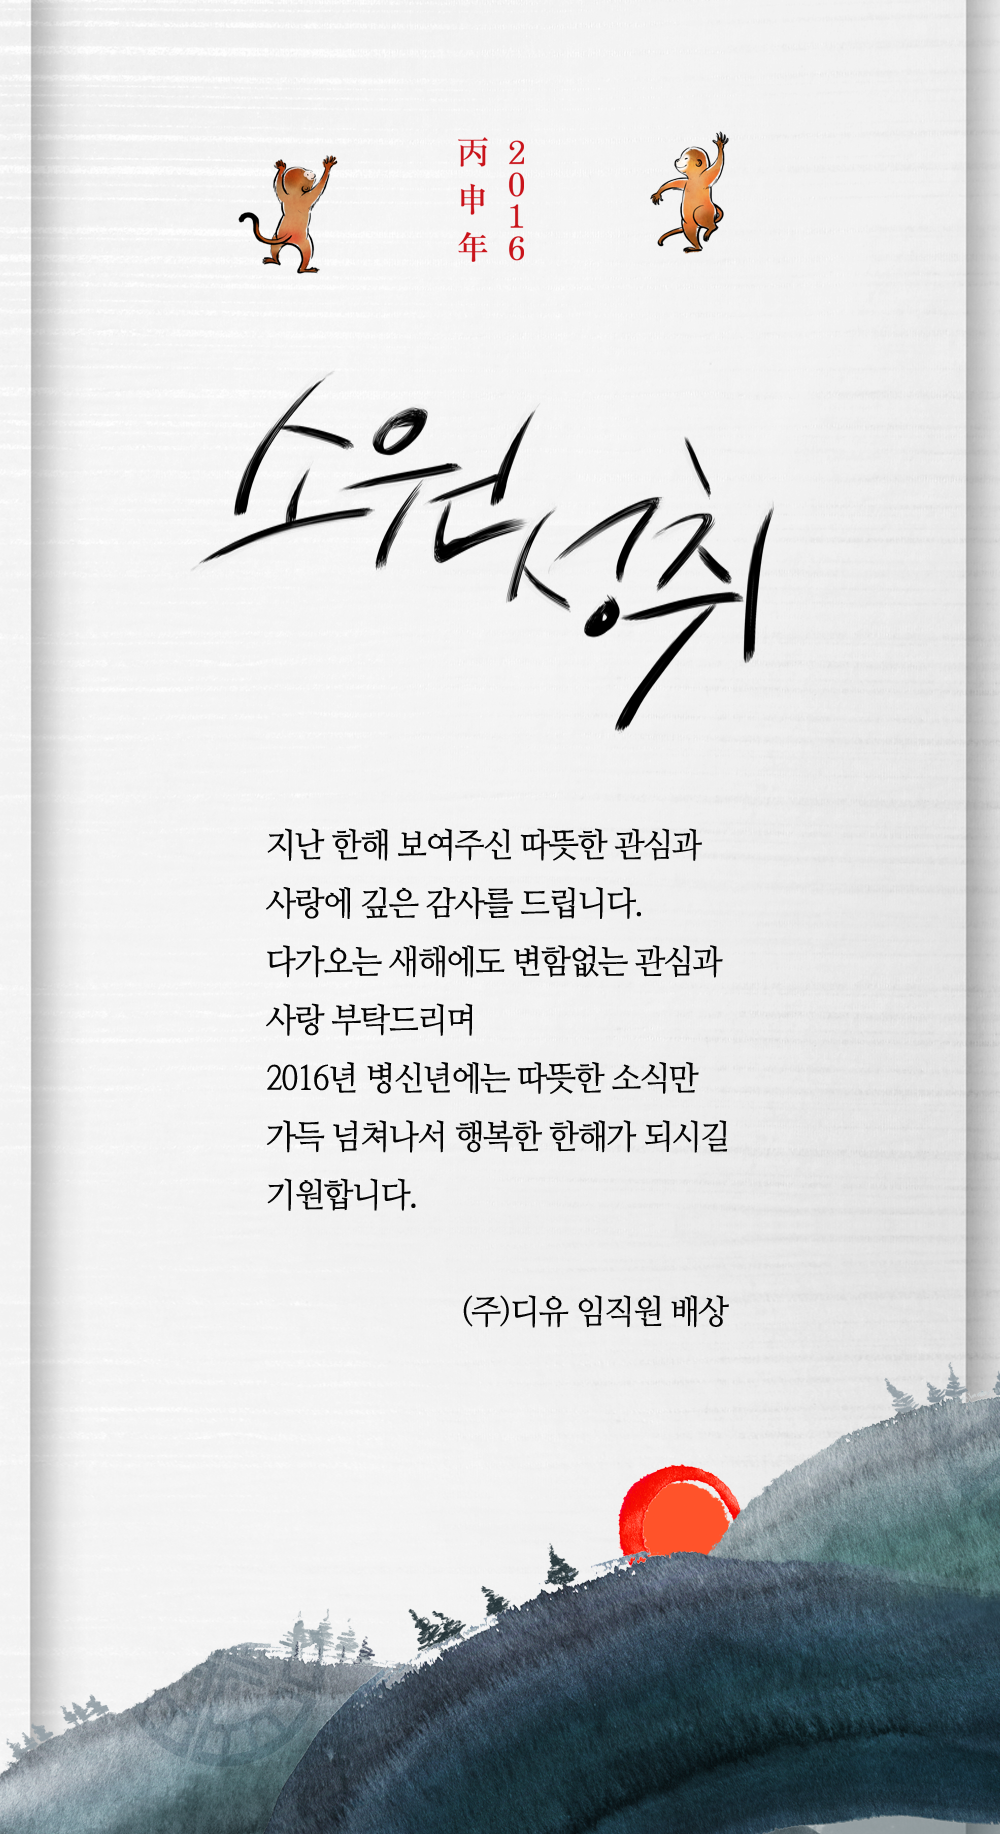 丙申年
2016
소원성취
지난 한해 보여주신 따뜻한 관심과
사랑에 깊은 감사를 드립니다.
다가오는 새해에도 변함없는 관심과
사랑 부탁드리며
2016년 병신년에는 따뜻한 소식만
가득 넘쳐나서 행복한 한해가 되시길
기원합니다.
(주)디유 임직원 배상